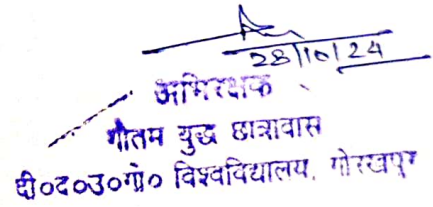 28/10/24
अभिरक्षक
गौतम बुद्ध छात्रावास
दी०द०उ०गो० विश्वविद्यालय, गोरखपुर